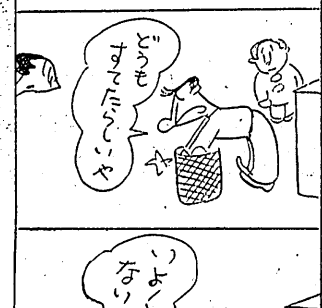 どうも
すてたらしいや
いよ
ない